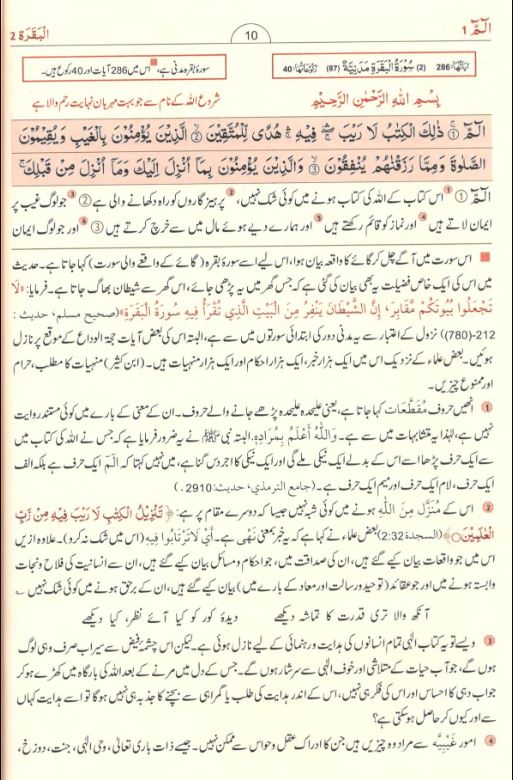 الٓمّٓ 1
10
اَلْبَقَرَة 2
اٰیَاتُهَا: 286 (2) سُوْرَةُ الْبَقَرَةِ مَدَنِیَّةٌ (87) رُكُوْعَاتُهَا: 40
سورۂ بقرہ مدنی ہے، اس میں 286 آیات اور 40 رکوع ہیں۔
بِسْمِ اللّٰهِ الرَّحْمٰنِ الرَّحِیْمِ
شروع اللہ کے نام سے جو بہت مہربان نہایت رحم والا ہے
الٓمّٓ ① ذٰلِكَ الْكِتٰبُ لَا رَیْبَ ۛ فِیْهِ ۛ هُدًی لِّلْمُتَّقِیْنَ ② الَّذِیْنَ یُؤْمِنُوْنَ بِالْغَیْبِ وَیُقِیْمُوْنَ
الصَّلٰوةَ وَمِمَّا رَزَقْنٰهُمْ یُنْفِقُوْنَ ③ وَالَّذِیْنَ یُؤْمِنُوْنَ بِمَاۤ اُنْزِلَ اِلَیْكَ وَمَاۤ اُنْزِلَ مِنْ قَبْلِكَ ۚ
الٓمّٓ ① اس کتاب کے اللہ کی کتاب ہونے میں کوئی شک نہیں، پرہیزگاروں کو راہ دکھانے والی ہے ② جو لوگ غیب پر
ایمان لاتے ہیں اور نماز کو قائم رکھتے ہیں اور ہمارے دیے ہوئے مال میں سے خرچ کرتے ہیں ③ اور جو لوگ ایمان
اس سورت میں آگے چل کر گائے کا واقعہ بیان ہوا، اس لیے اسے سورۂ بقرہ (گائے کے واقعے والی سورت) کہا جاتا ہے۔ حدیث
میں اس کی ایک خاص فضیلت یہ بھی بیان کی گئی ہے کہ جس گھر میں یہ پڑھی جائے، اس گھر سے شیطان بھاگ جاتا ہے۔ فرمایا: «لَا
تَجْعَلُوا بُیُوتَكُمْ مَقَابِرَ، إِنَّ الشَّیْطَانَ یَنْفِرُ مِنَ الْبَیْتِ الَّذِي تُقْرَأُ فِیهِ سُورَةُ الْبَقَرَةِ» (صحیح مسلم، حدیث:
212-(780) نزول کے اعتبار سے یہ مدنی دور کی ابتدائی سورتوں میں سے ہے، البتہ اس کی بعض آیات حجۃ الوداع کے موقع پر نازل
ہوئیں۔ بعض علماء کے نزدیک اس میں ایک ہزار خبر، ایک ہزار احکام اور ایک ہزار منہیات ہیں۔ (ابن کثیر) منہیات کا مطلب، حرام
اور ممنوع چیزیں۔
1 انھیں حروف مُقَطَّعَات کہا جاتا ہے، یعنی علیحدہ علیحدہ پڑھے جانے والے حروف۔ ان کے معنی کے بارے میں کوئی مستند روایت
نہیں ہے، لہٰذا یہ متشابہات میں سے ہے۔ وَاللّٰهُ أَعْلَمُ بِمُرَادِهِ. البتہ نبی ﷺ نے یہ ضرور فرمایا ہے کہ جس نے اللہ کی کتاب میں
سے ایک حرف پڑھا اسے اس کے بدلے ایک نیکی ملے گی اور ایک نیکی کا اجر دس گنا ہے، میں نہیں کہتا کہ الٓمٓ ایک حرف ہے بلکہ الف
ایک حرف، لام ایک حرف اور میم ایک حرف ہے۔ (جامع الترمذي، حدیث: 2910.)
2 اس کے مُنَزَّل مِنَ اللّٰهِ ہونے میں کوئی شبہ نہیں جیسا کہ دوسرے مقام پر ہے: ﴿تَنْزِیْلُ الْكِتٰبِ لَا رَیْبَ فِیْهِ مِنْ رَّبِّ
الْعٰلَمِیْنَ﴾ (السجدة 2:32) بعض علماء نے کہا ہے کہ یہ خبر بمعنی نَهْي ہے۔ أَيْ لَا تَرْتَابُوا فِیهِ (اس میں شک نہ کرو)۔ علاوہ ازیں
اس میں جو واقعات بیان کیے گئے ہیں، ان کی صداقت میں، جو احکام و مسائل بیان کیے گئے ہیں، ان سے انسانیت کی فلاح و نجات
وابستہ ہونے میں اور جو عقائد (توحید و رسالت اور معاد کے بارے میں) بیان کیے گئے ہیں، ان کے برحق ہونے میں کوئی شک نہیں
آنکھ والا تری قدرت کا تماشہ دیکھے دیدۂ کور کو کیا آئے نظر، کیا دیکھے
3 ویسے تو یہ کتاب الٰہی تمام انسانوں کی ہدایت و رہنمائی کے لیے نازل ہوئی ہے۔ لیکن اس چشمۂ فیض سے سیراب صرف وہی لوگ
ہوں گے، جو آب حیات کے متلاشی اور خوف الٰہی سے سرشار ہوں گے۔ جس کے دل میں مرنے کے بعد اللہ کی بارگاہ میں کھڑے ہو کر
جواب دہی کا احساس اور اس کی فکر ہی نہیں، اس کے اندر ہدایت کی طلب یا گمراہی سے بچنے کا جذبہ ہی نہیں ہو گا تو اسے ہدایت کہاں
سے اور کیوں کر حاصل ہو سکتی ہے؟
4 امور غَیْبِیَّه سے مراد وہ چیزیں ہیں جن کا ادراک عقل و حواس سے ممکن نہیں۔ جیسے ذات باری تعالیٰ، وحی الٰہی، جنت، دوزخ،